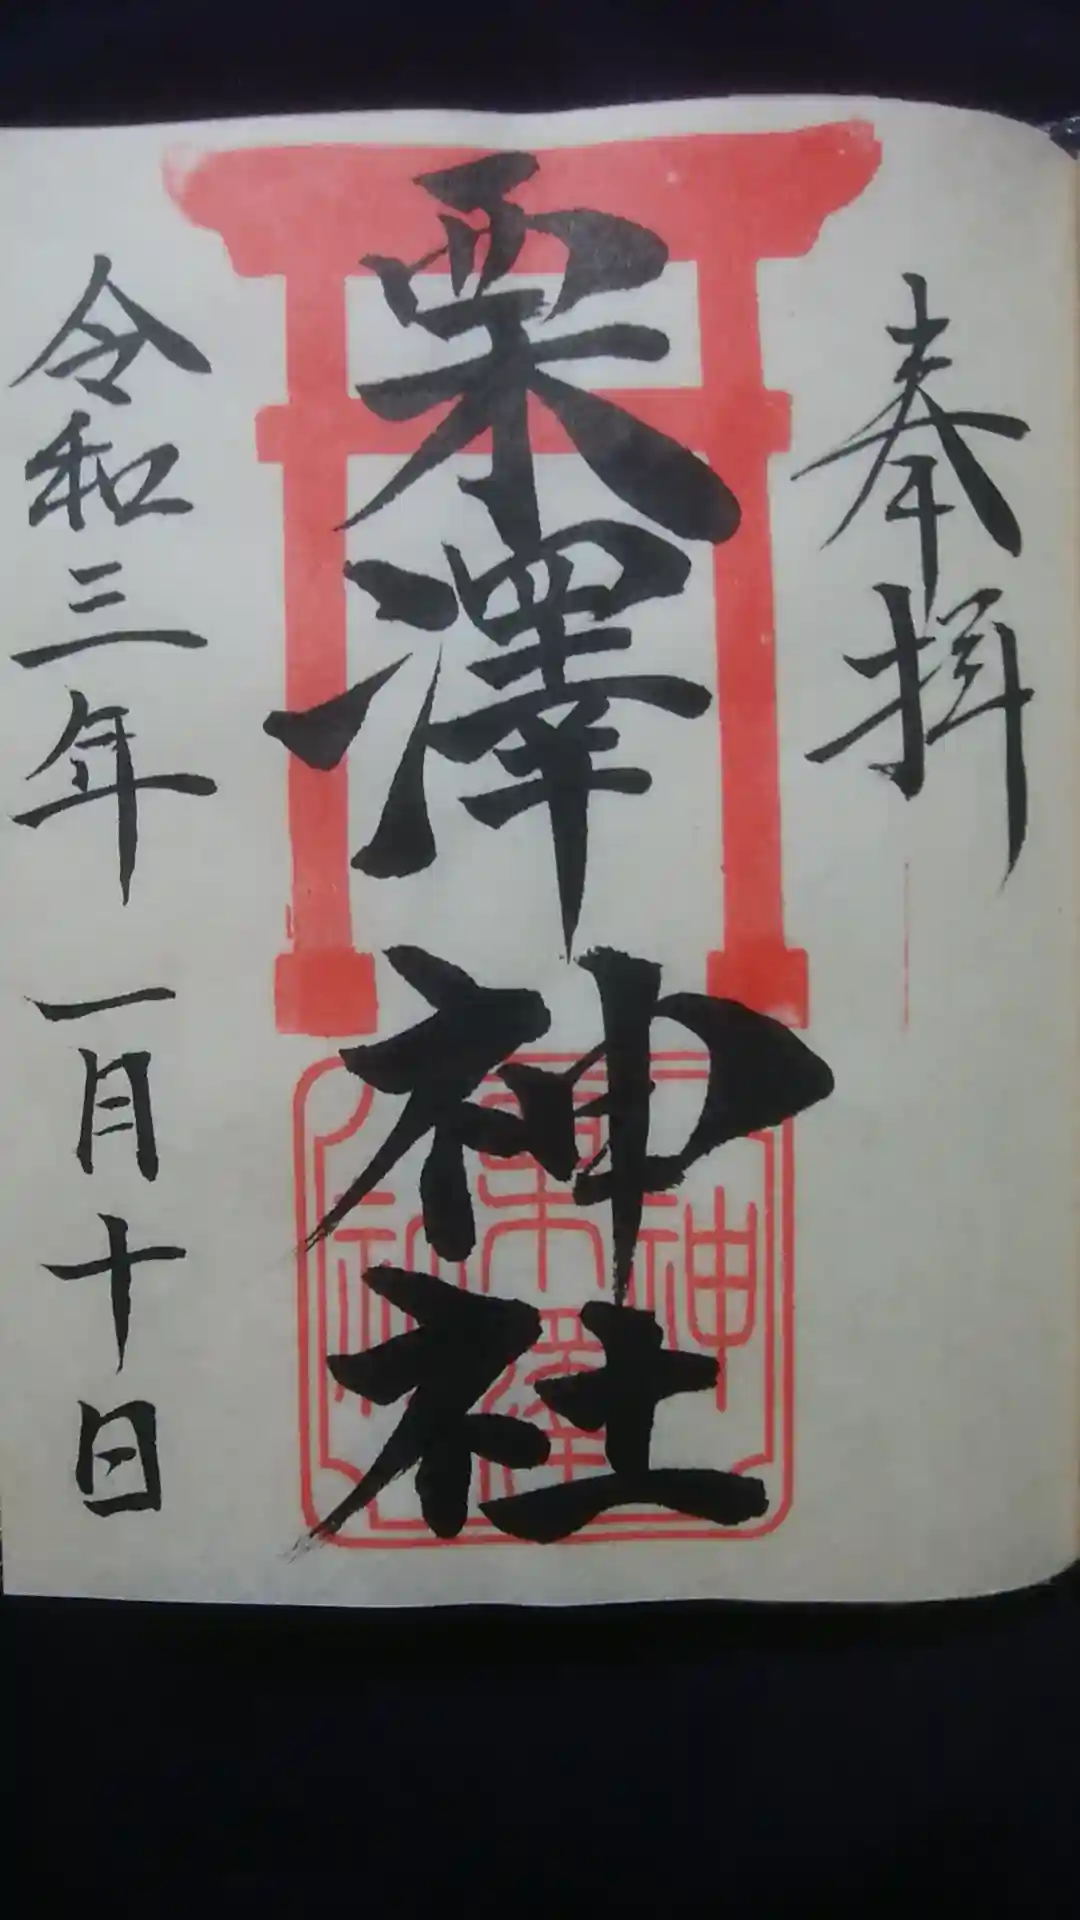 奉拝
栗澤神社
令和三年一月十日
栗澤
神社